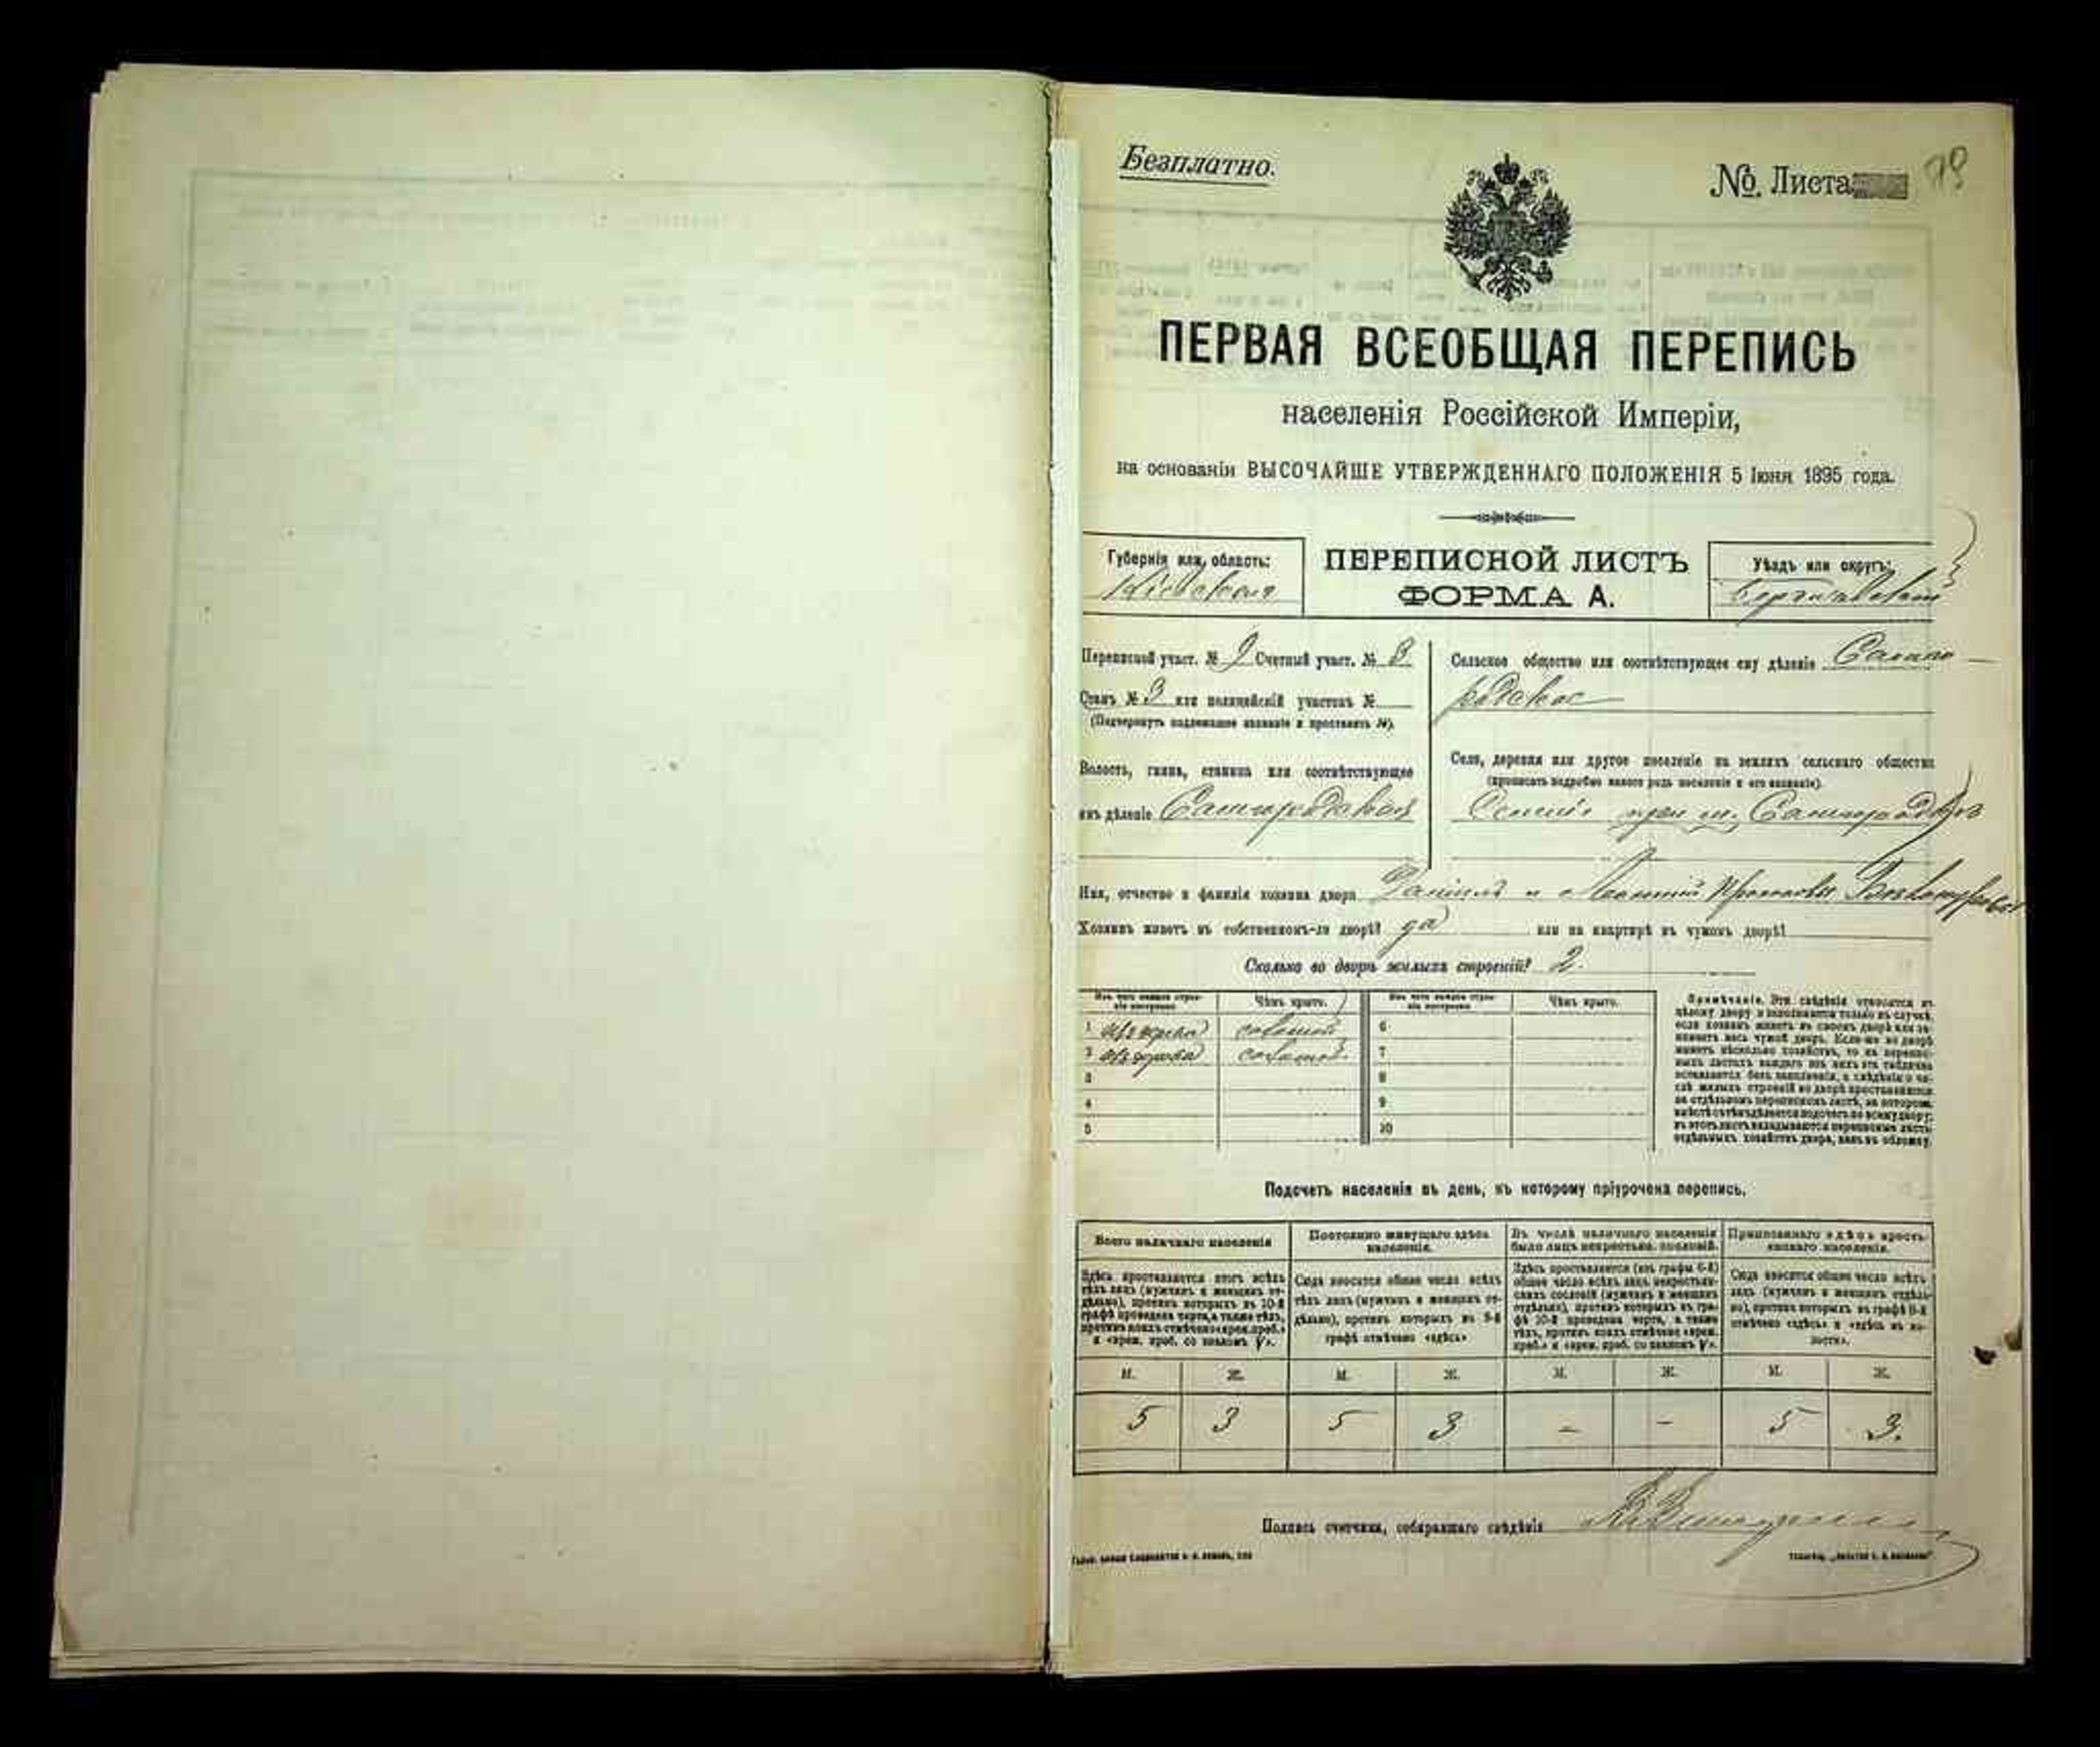 Безплатно.
№. Листа 79
ПЕРВАЯ ВСЕОБЩАЯ ПЕРЕПИСЬ
населенія Россійской Имперіи,
на основаніи ВЫСОЧАЙШЕ УТВЕРЖДЕННАГО ПОЛОЖЕНІЯ 5 Іюня 1895 года.
Губернія или область:
Кіевская
ПЕРЕПИСНОЙ ЛИСТЪ
ФОРМА А.
Уѣздъ или округъ:
Бердичевскій
Переписной участ. № 9 Счетный участ. № 8
Станъ № 3 или полицейскій участокъ №
(Подчеркнуть подлежащее названіе и проставить №).
Волость, гмина, станица или соотвѣтствующее
имъ дѣленіе Самгородская
Сельское общество или соотвѣтствующее ему дѣленіе Самго-
родское
Село, деревня или другое поселеніе на земляхъ сельскаго общества
(прописать подробно какого рода поселеніе и его названіе).
при м. Самгородкѣ
Имя, отчество и фамилія хозяина двора Даніилъ и
Хозяинъ живетъ въ собственномъ-ли дворѣ? да или на квартирѣ въ чужомъ дворѣ?
Сколько во дворѣ жилыхъ строеній? 2.
Изъ чего каждое строеніе построено Чѣмъ крыто. Изъ чего каждое строеніе построено Чѣмъ крыто.
1 изъ дерева соломой 6
2 изъ дерева соломой 7
3 8
4 9
5 10
Примѣчаніе. Эти свѣдѣнія относятся къ
цѣлому двору и заполняются только въ случаѣ,
если хозяинъ живетъ въ своемъ дворѣ или за-
нимаетъ весь чужой дворъ. Если-же во дворѣ
имѣетъ нѣсколько хозяйствъ, то на перепис-
ныхъ листахъ каждаго изъ нихъ эта табличка
оставляется безъ заполненія, а свѣдѣнія о чи-
слѣ жилыхъ строеній во дворѣ проставляются
на отдѣльномъ переписномъ листѣ, на которомъ
вмѣстѣ съ тѣмъ дѣлается подсчетъ по всему двору;
въ этотъ листъ вкладываются переписные листы
отдѣльныхъ хозяйствъ двора, какъ въ обложку.
Подсчетъ населенія въ день, къ которому пріурочена перепись.
Всего наличнаго населенія
Здѣсь проставляется итогъ всѣхъ
тѣхъ лицъ (мужчинъ и женщинъ от-
дѣльно), противъ которыхъ въ 10-й
графѣ проведена черта, а также тѣхъ,
противъ коихъ отмѣчено «врем. проб.»
и «врем. проб. со знакомъ V».
Постоянно живущаго здѣсь
населенія.
Сюда вносится общее число всѣхъ
тѣхъ лицъ (мужчинъ и женщинъ от-
дѣльно), противъ которыхъ въ 9-й
графѣ отмѣчено «здѣсь»
Въ числѣ наличнаго населенія
было лицъ некрестьянск. сословій.
Здѣсь проставляется (изъ графы 6-й)
общее число всѣхъ лицъ некрестьян-
скихъ сословій (мужчинъ и женщинъ
отдѣльно), противъ которыхъ въ гра-
фѣ 10-й проведена черта, а также
тѣхъ, противъ коихъ отмѣчено «врем.
проб.» и «врем. проб. со знакомъ V».
Приписаннаго здѣсь кресть-
янскаго населенія.
Сюда вносится общее число всѣхъ
лицъ (мужчинъ и женщинъ отдѣль-
но), противъ которыхъ въ графѣ 8-й
отмѣчено «здѣсь» и «здѣсь въ во-
лости».
М. Ж. М. Ж. М. Ж. М. Ж.
5 3 5 3 – – 5 3.
Подпись счетчика, собиравшаго свѣдѣнія